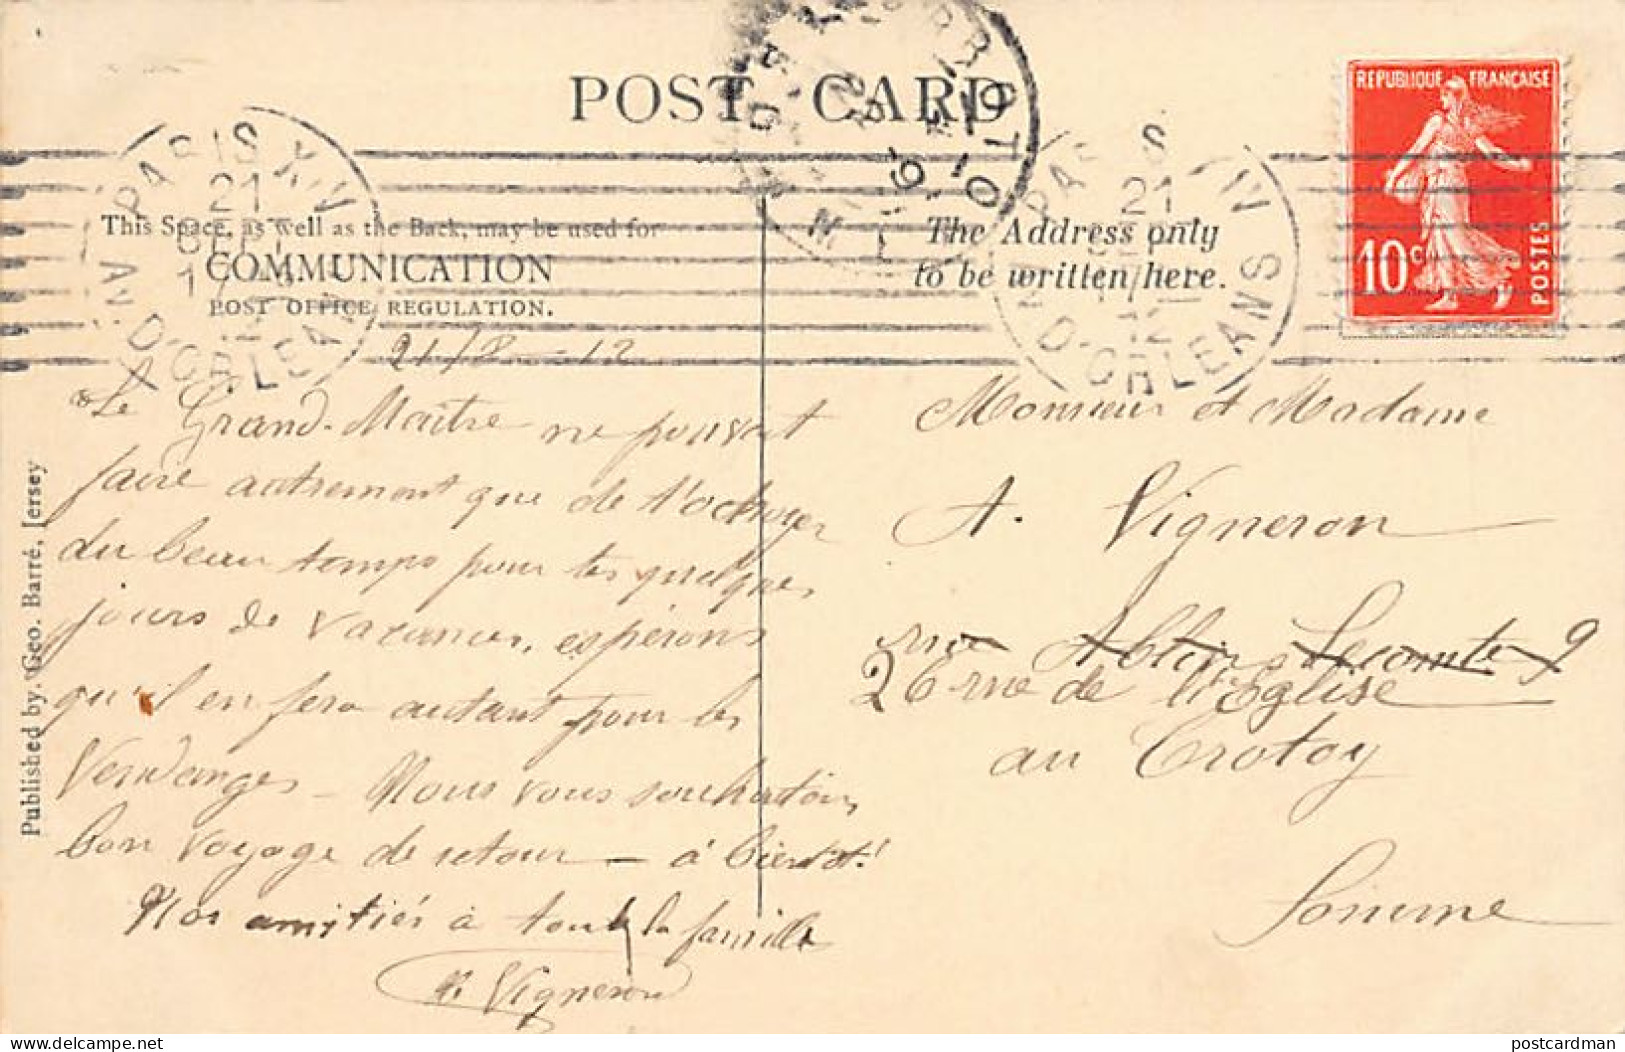 POST CARD
REPUBLIQUE FRANÇAISE
10 c
POSTES
PARIS XIV
21
SEPT
12
AV. D'ORLEANS
PARIS XIV
21
12
AV. D'ORLEANS
LE CROTOY
This Space, as well as the Back, may be used for
COMMUNICATION
POST OFFICE REGULATION.
The Address only
to be written here.
Published by Geo. Barré, Jersey
21/8 - 12
Le Grand-Maître ne pouvait
faire autrement que de
du beau temps pour tes quelques
jours de vacances, espérons
qu'il en fera autant pour les
Vendanges - Nous vous souhaitons
bon voyage de retour - à bientôt!
Nos amitiés à toute la famille
Vigneron
Monsieur et Madame
A. Vigneron
rue Ablin Lecomte 9
26 rue de l'Eglise
au Crotoy
Somme
delcampe.net
postcardman